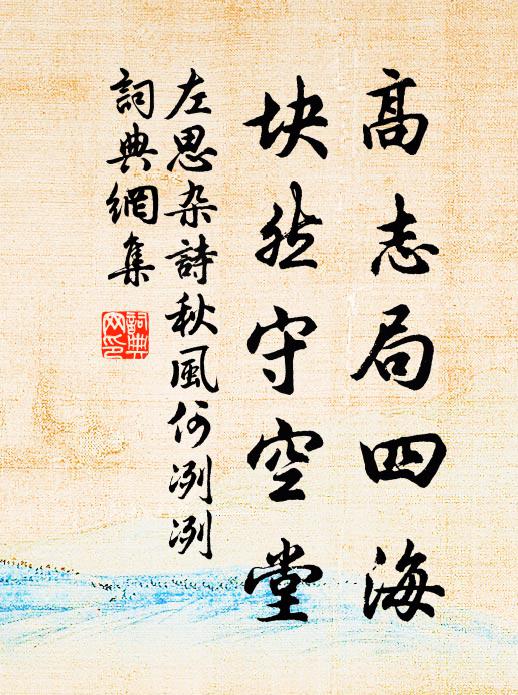 高志局四海
块然守空堂
左思杂詩秋風何冽冽
詞典網集
詞典網印